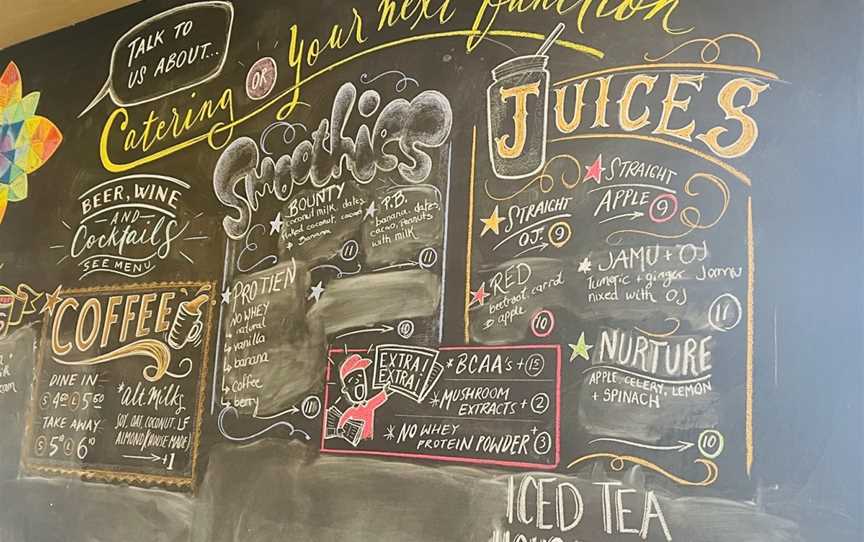 TALK TO
US ABOUT...
Catering OR Your next function
BEER, WINE
AND
Cocktails
SEE MENU
COFFEE
DINE IN
S 4.60 L 5.60
TAKE AWAY
S 5 L 6
*alt Milks
SOY, OAT, COCONUT, LF
ALMOND (HOUSE MADE)
+1
Smoothies
BOUNTY
coconut milk, dates,
coconut, cacao
& Banana
11
P.B.
banana, dates,
cacao, peanuts
with milk
11
PROTIEN
NO WHEY
natural
vanilla
banana
coffee
berry
10
EXTRA!
EXTRA!
*BCAA's +15
*MUSHROOM
EXTRACTS +2
*NO WHEY
PROTEIN POWDER +3
JUICES
STRAIGHT
OJ. 9
STRAIGHT
APPLE 9
RED
beetroot, carrot
& apple
10
JAMU + OJ
Tumeric + ginger Jamu
mixed with OJ
11
NURTURE
APPLE, CELERY, LEMON
+ SPINACH
10
ICED TEA